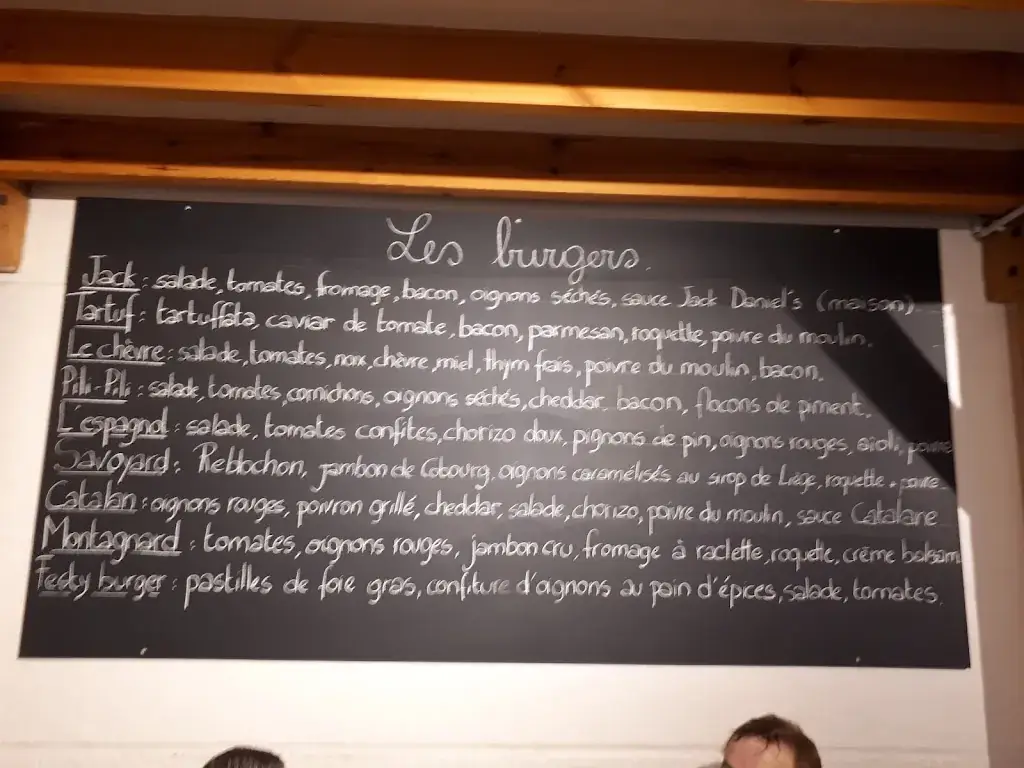 Les burgers.
Jack : salade, tomates, fromage, bacon, oignons séchés, sauce Jack Daniel's (maison)
Tartuf : tartuffata, caviar de tomate, bacon, parmesan, roquette, poivre du moulin.
Le chèvre : salade, tomates, noix, chèvre, miel, thym frais, poivre du moulin, bacon.
Pili-Pili : salade, tomates, cornichons, oignons séchés, cheddar, bacon, flocons de piment.
L'espagnol : salade, tomates confites, chorizo doux, pignons de pin, oignons rouges, aïoli, poivre
Savoyard : Reblochon, jambon de Cobourg, oignons caramélisés au sirop de Liège, roquette + poivre
Catalan : oignons rouges, poivron grillé, cheddar, salade, chorizo, poivre du moulin, sauce Catalane
Montagnard : tomates, oignons rouges, jambon cru, fromage à raclette, roquette, crème balsam
burger : pastilles de foie gras, confiture d'oignons au pain d'épices, salade, tomates.